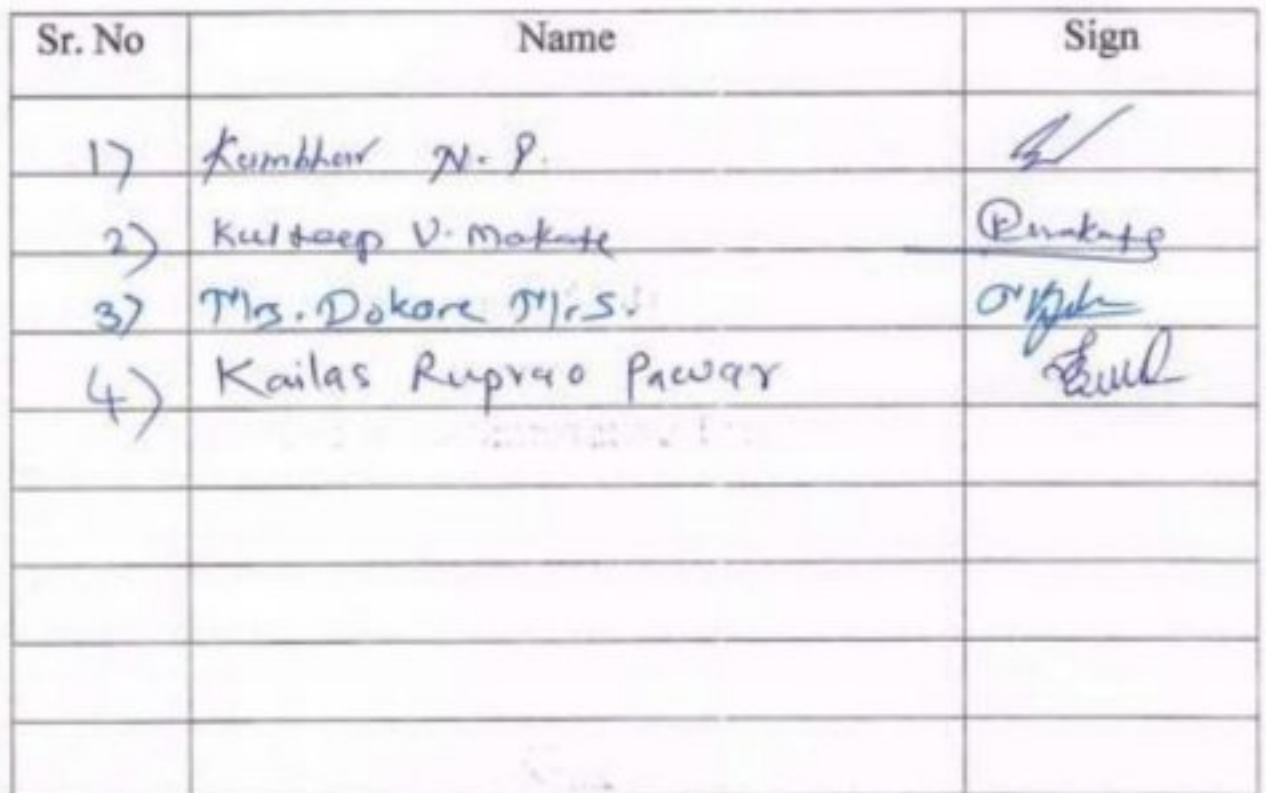 Sr. No Name Sign
1) Kumbhar N. P.
2) Kuldeep V. Makate
3) Mrs. Dokare M.S.
4) Kailas Ruprao Pawar